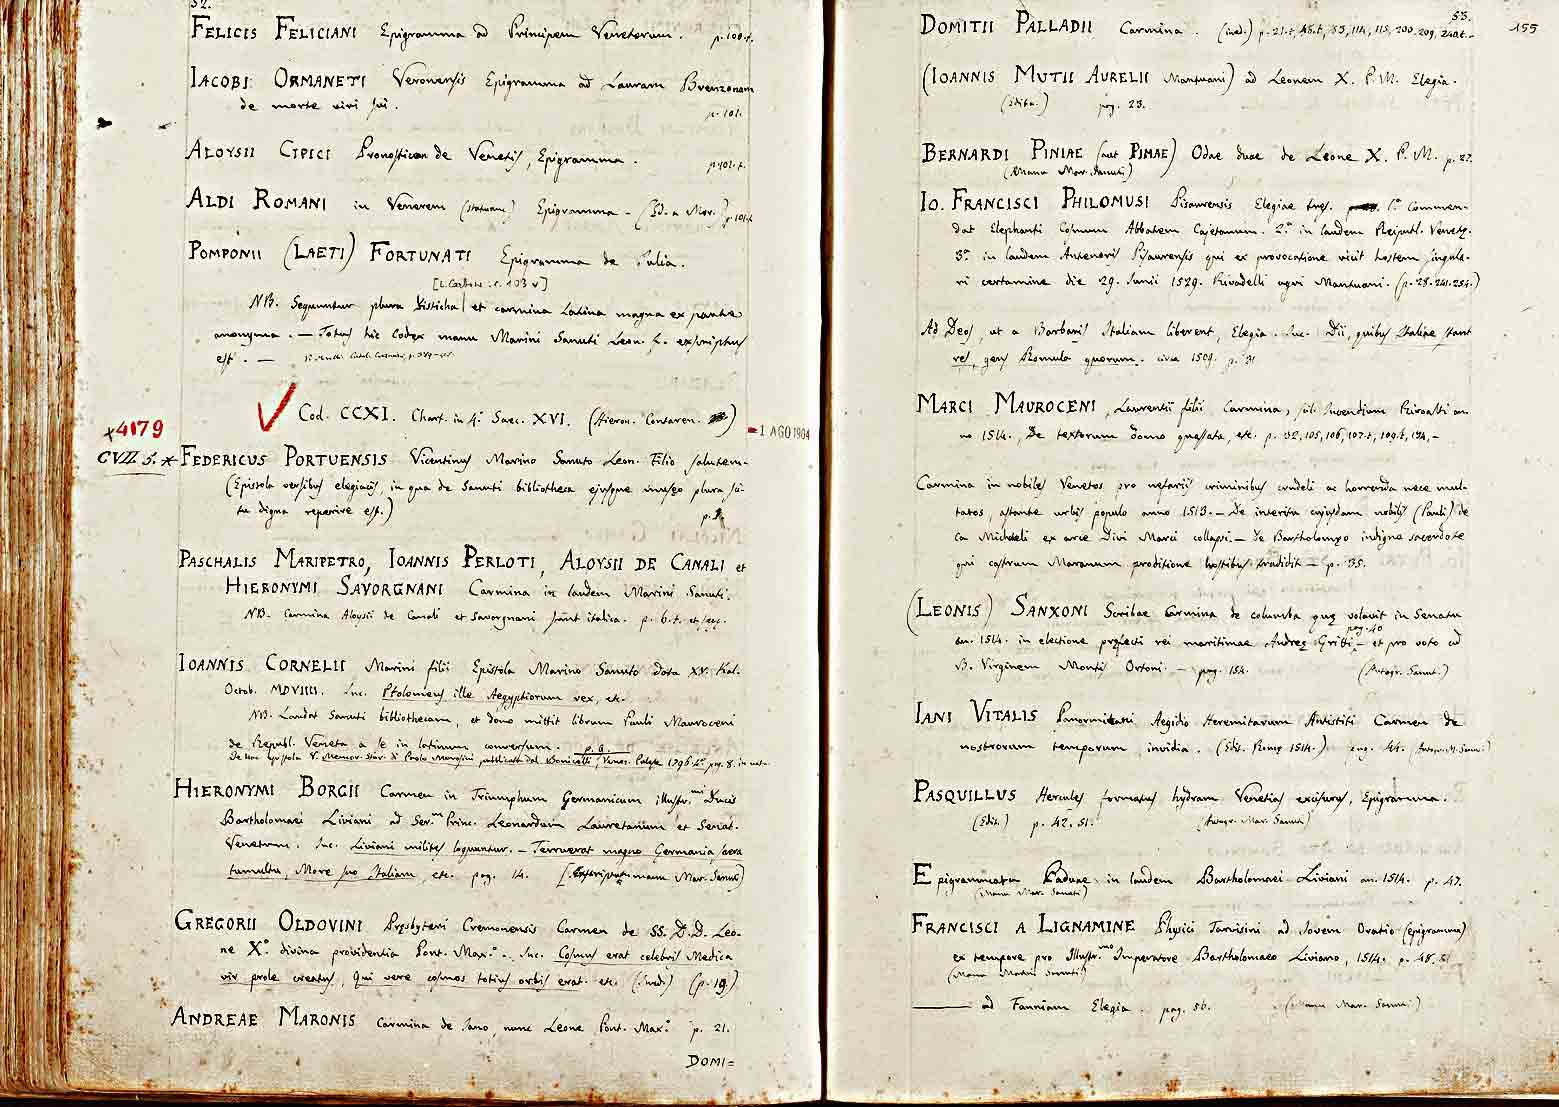 52.
FELICIS FELICIANI Epigramma ad Principem Venetorum. p. 100.t.
IACOBI ORMANETI Veronensis Epigramma ad Lauram Brenzonam
de morte viri sui.
p. 101.
ALOYSII CIPICI Pronosticon de Venetis, Epigramma. p. 101.t.
ALDI ROMANI in Venerem (statuam) Epigramma - (Ed. a Mor.) p. 101.t
POMPONII (LAETI) FORTUNATI Epigramma de Iulia.
[L. Carbone. c. 103 v]
NB. Sequuntur plura disticha et carmina Latina magna ex parte
anonyma. — Totus hic Codex manu Marini Sanuti Leon. f. exscriptus
est. —
Cod. CCXI. Chart. in 4.º Saec. XVI. (Hieron. Contaren.)
*4179
-1 AGO 1904
CVII. 5. *
FEDERICUS PORTUENSIS Vicentinus Marino Sanuto Leon. Filio salutem-
(Epistola versibus elegiacis, in qua de Sanuti bibliotheca ejusque museo plura sci-
tu digna reperire est.)
p. 1.
PASCHALIS MARIPETRO, IOANNIS PERLOTI, ALOYSII DE CANALI et
HIERONYMI SAVORGNANI Carmina in laudem Marini Sanuti.
NB. Carmina Aloysii de Canali et Savorgnani sunt italica. p. 6.t. et seq.
IOANNIS CORNELII Marini filii Epistola Marino Sanuto data XV. Kal.
Octob. MDVIIII. Inc. Ptolomeus ille Aegyptiorum rex, etc.
NB. Laudat Sanuti bibliothecam, et dono mittit librum Pauli Mauroceni
de Republ. Veneta a se in latinum conversum. p. 9.
De hac epistola V. Memor. stor. di Paolo Morosini pubblicate dal Bonicelli, Venez. Palese 1796 4.º pag. 8. in nota.
HIERONYMI BORGII Carmen in Triumphum Germanicum illustr.mi Ducis
Bartholomaei Liviani ad Ser.m Princ. Leonardum Lauretanum et Senat.
Venetum. Inc. Liviani milites loquuntur. — Terruerat magno Germania saeva
tumultu, More suo Italiam, etc. pag. 14. (Exscripta manu Mar. Sanuti)
GREGORII OLDOVINI Presbyteri Cremonensis Carmen de SS. D. D. Leo-
ne X.º divina providentia Pont. Max.º. Inc. Cosmus erat celebris Medica
vir prole creatus, Qui vere cosmos totius orbis erat. etc. (Ined.) (p. 19)
ANDREAE MARONIS Carmina de Iano, nunc Leone Pont. Max.º p. 21.
DOMI=
53.
155
DOMITII PALLADII Carmina. (ined.) p. 21.t, 45.t, 53, 114, 115, 200, 209, 240.t.-
(IOANNIS MUTII AURELII Mantuani) ad Leonem X. P. M. Elegia.
(Edita.) pag. 23.
BERNARDI PINIAE (aut PIMAE) Odae duae de Leone X. P. M. p. 27.
(Manu Mar. Sanuti)
IO. FRANCISCI PHILOMUSI Pisaurensis Elegiae tres. 1.ª Commen-
dat Elephanti Cornum Abbatem Cajetanum. 2.ª in laudem Reipubl. Venetę.
3.ª in laudem Antenoris Pisaurensis qui ex provocatione vicit hostem singula-
ri certamine die 29. Junii 1529. Rivadelli agri Mantuani. (p. 28. 241. 254.)
Ad Deos, ut a Barbaris Italiam liberent, Elegia. Inc. Dii, quibus Italiae stant
res, gens Romula quorum. circa 1509. p. 31
MARCI MAUROCENI, Laurentii filii Carmina, scil. Incendium Rivoalti an-
no 1514., De textorum domo quassata, etc. p. 32, 105, 106, 107.t, 109.t, 124, -
Carmina in nobiles Venetos pro nefariis criminibus crudeli ac horrenda nece mul-
tatos, astante urbis populo anno 1513. — De interitu cujusdam nobilis (Pauli) de
Ca Michaeli ex arce Divi Marci collapsi. — de Bartholomęo indigno sacerdote
qui castrum Maranum proditione hostibus tradidit — p. 35.
(LEONIS) SANXONI Scribae Carmina de columba quę volavit in Senatu
pag. 40
an. 1514. in electione pręfecti rei maritimae Andreę Gritti, - et pro voto ad
B. Virginem Montis Ortoni. — pag. 154. (Autogr. Sanut.)
IANI VITALIS Panormitani Aegidio Heremitarum Antistiti Carmen de
nostrorum temporum invidia. (Edit. Romę 1514.) pag. 44. (Autogr. M. Sanu.)
PASQUILLUS Hercules formatus hydram Venetias excisurus, Epigramma.
(Edit.) p. 42. 51. (Autogr. Mar. Sanuti)
Epigrammata Paduae in laudem Bartholomaei Liviani an. 1514. p. 47.
(Manu Mar. Sanuti)
FRANCISCI A LIGNAMINE Physici Tarvisini ad Jovem Oratio (epigramma)
ex tempore pro Illustr.mo Imperatore Bartholomaeo Liviano, 1514. p. 48, 51
(Manu Marini Sanuti)
——— ad Fanniam Elegia. pag. 56. (Manu Mar. Sanu.)